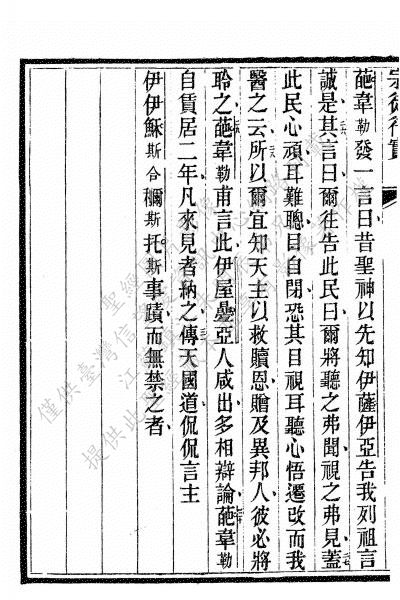 宗徒行實
葩韋勒發一言曰昔聖神以先知伊薩伊亞告我列祖言
誠是其言曰爾往告此民曰爾將聽之弗聞視之弗見蓋
此民心頑耳難聰目自閉恐其目視耳聽心悟遷改而我
醫之云所以爾宜知天主以救贖恩贈及異邦人彼必將
聆之葩韋勒甫言此伊屋疊亞人咸出多相辯論葩韋勒
自賃居二年凡來見者納之傳天國道侃侃言主
伊伊穌斯合穪斯托斯事蹟而無禁之者